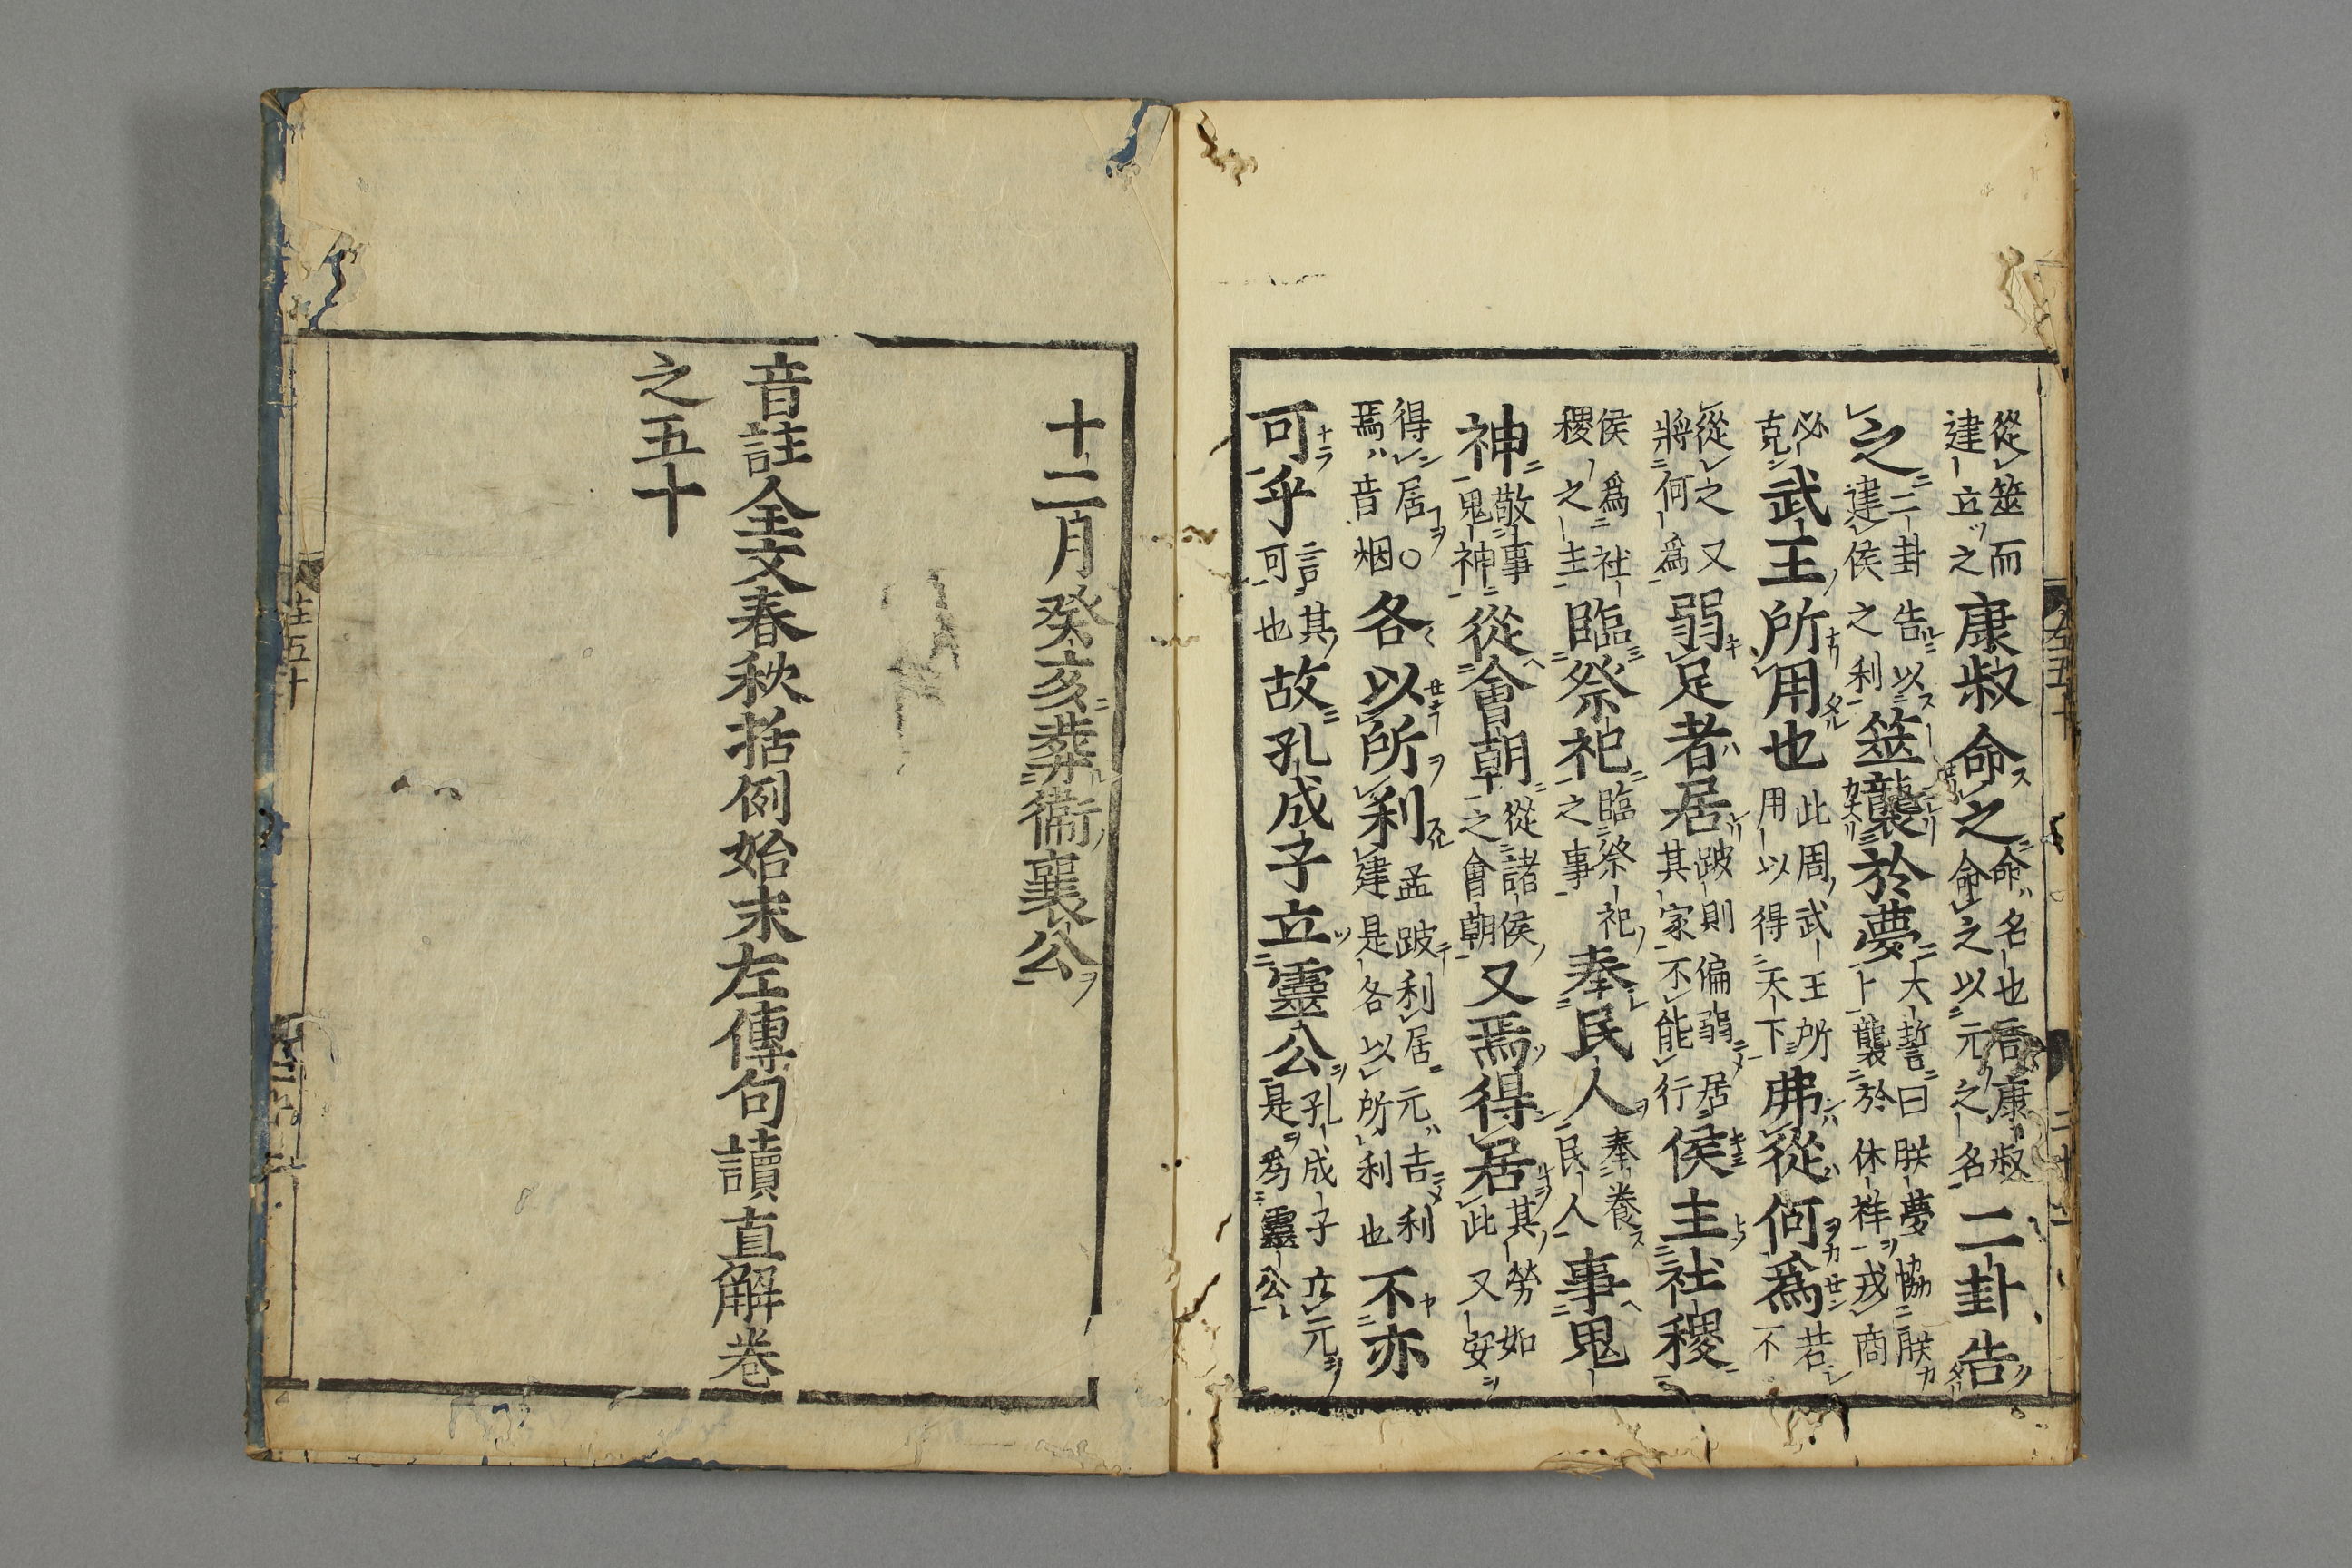 從筮而建立之康叔命之命名也言康叔命之以元之名二卦告
之二卦告以建侯之利筮襲於夢大誓曰朕夢協朕卜襲於休祥戎商
必克武王所用也此周武王所用以得天下弗從何爲若不
從之又將何爲弱足者居跛則偏弱居其家不能行侯主社稷
侯爲社稷之主臨祭祀臨祭祀之事奉民人奉養民人事鬼
神敬事鬼神從會朝從諸侯之會朝又焉得居其勞如此又安
得居○焉音烟各以所利孟跛利居元吉利建是各以所利也不亦
可乎言其可也故孔成子立靈公孔成子立元是爲靈公
十二月癸亥葬衞襄公
音註全文春秋括例始末左傳句讀直解卷
之五十